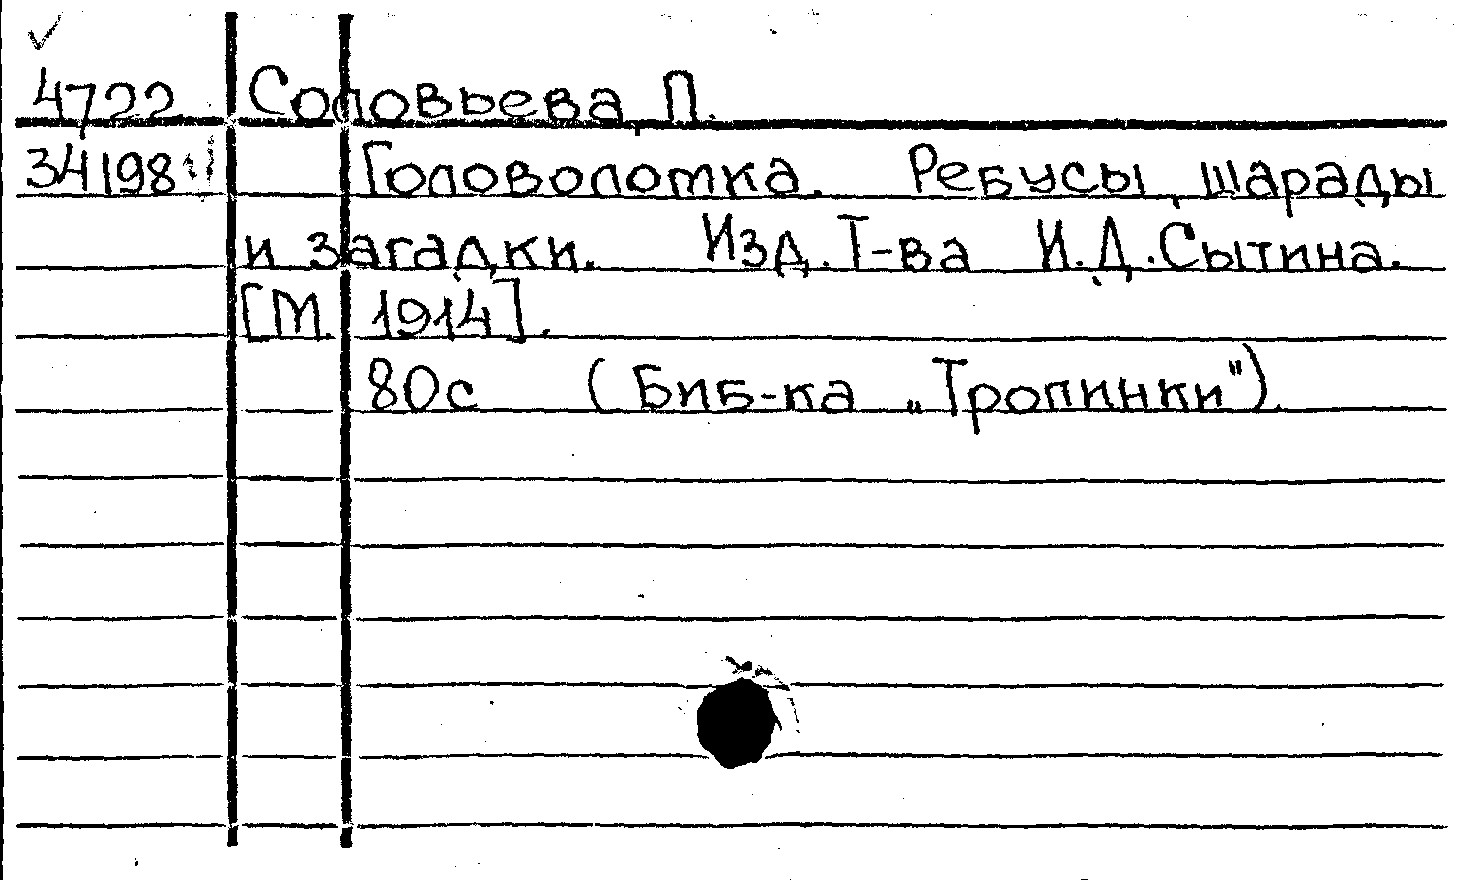 4722 Соловьева, П.
34198 Головоломка. Ребусы, шарады
и загадки. Изд. Т-ва И.Д. Сытина.
[М. 1914].
80с (Биб-ка „Тропинки")